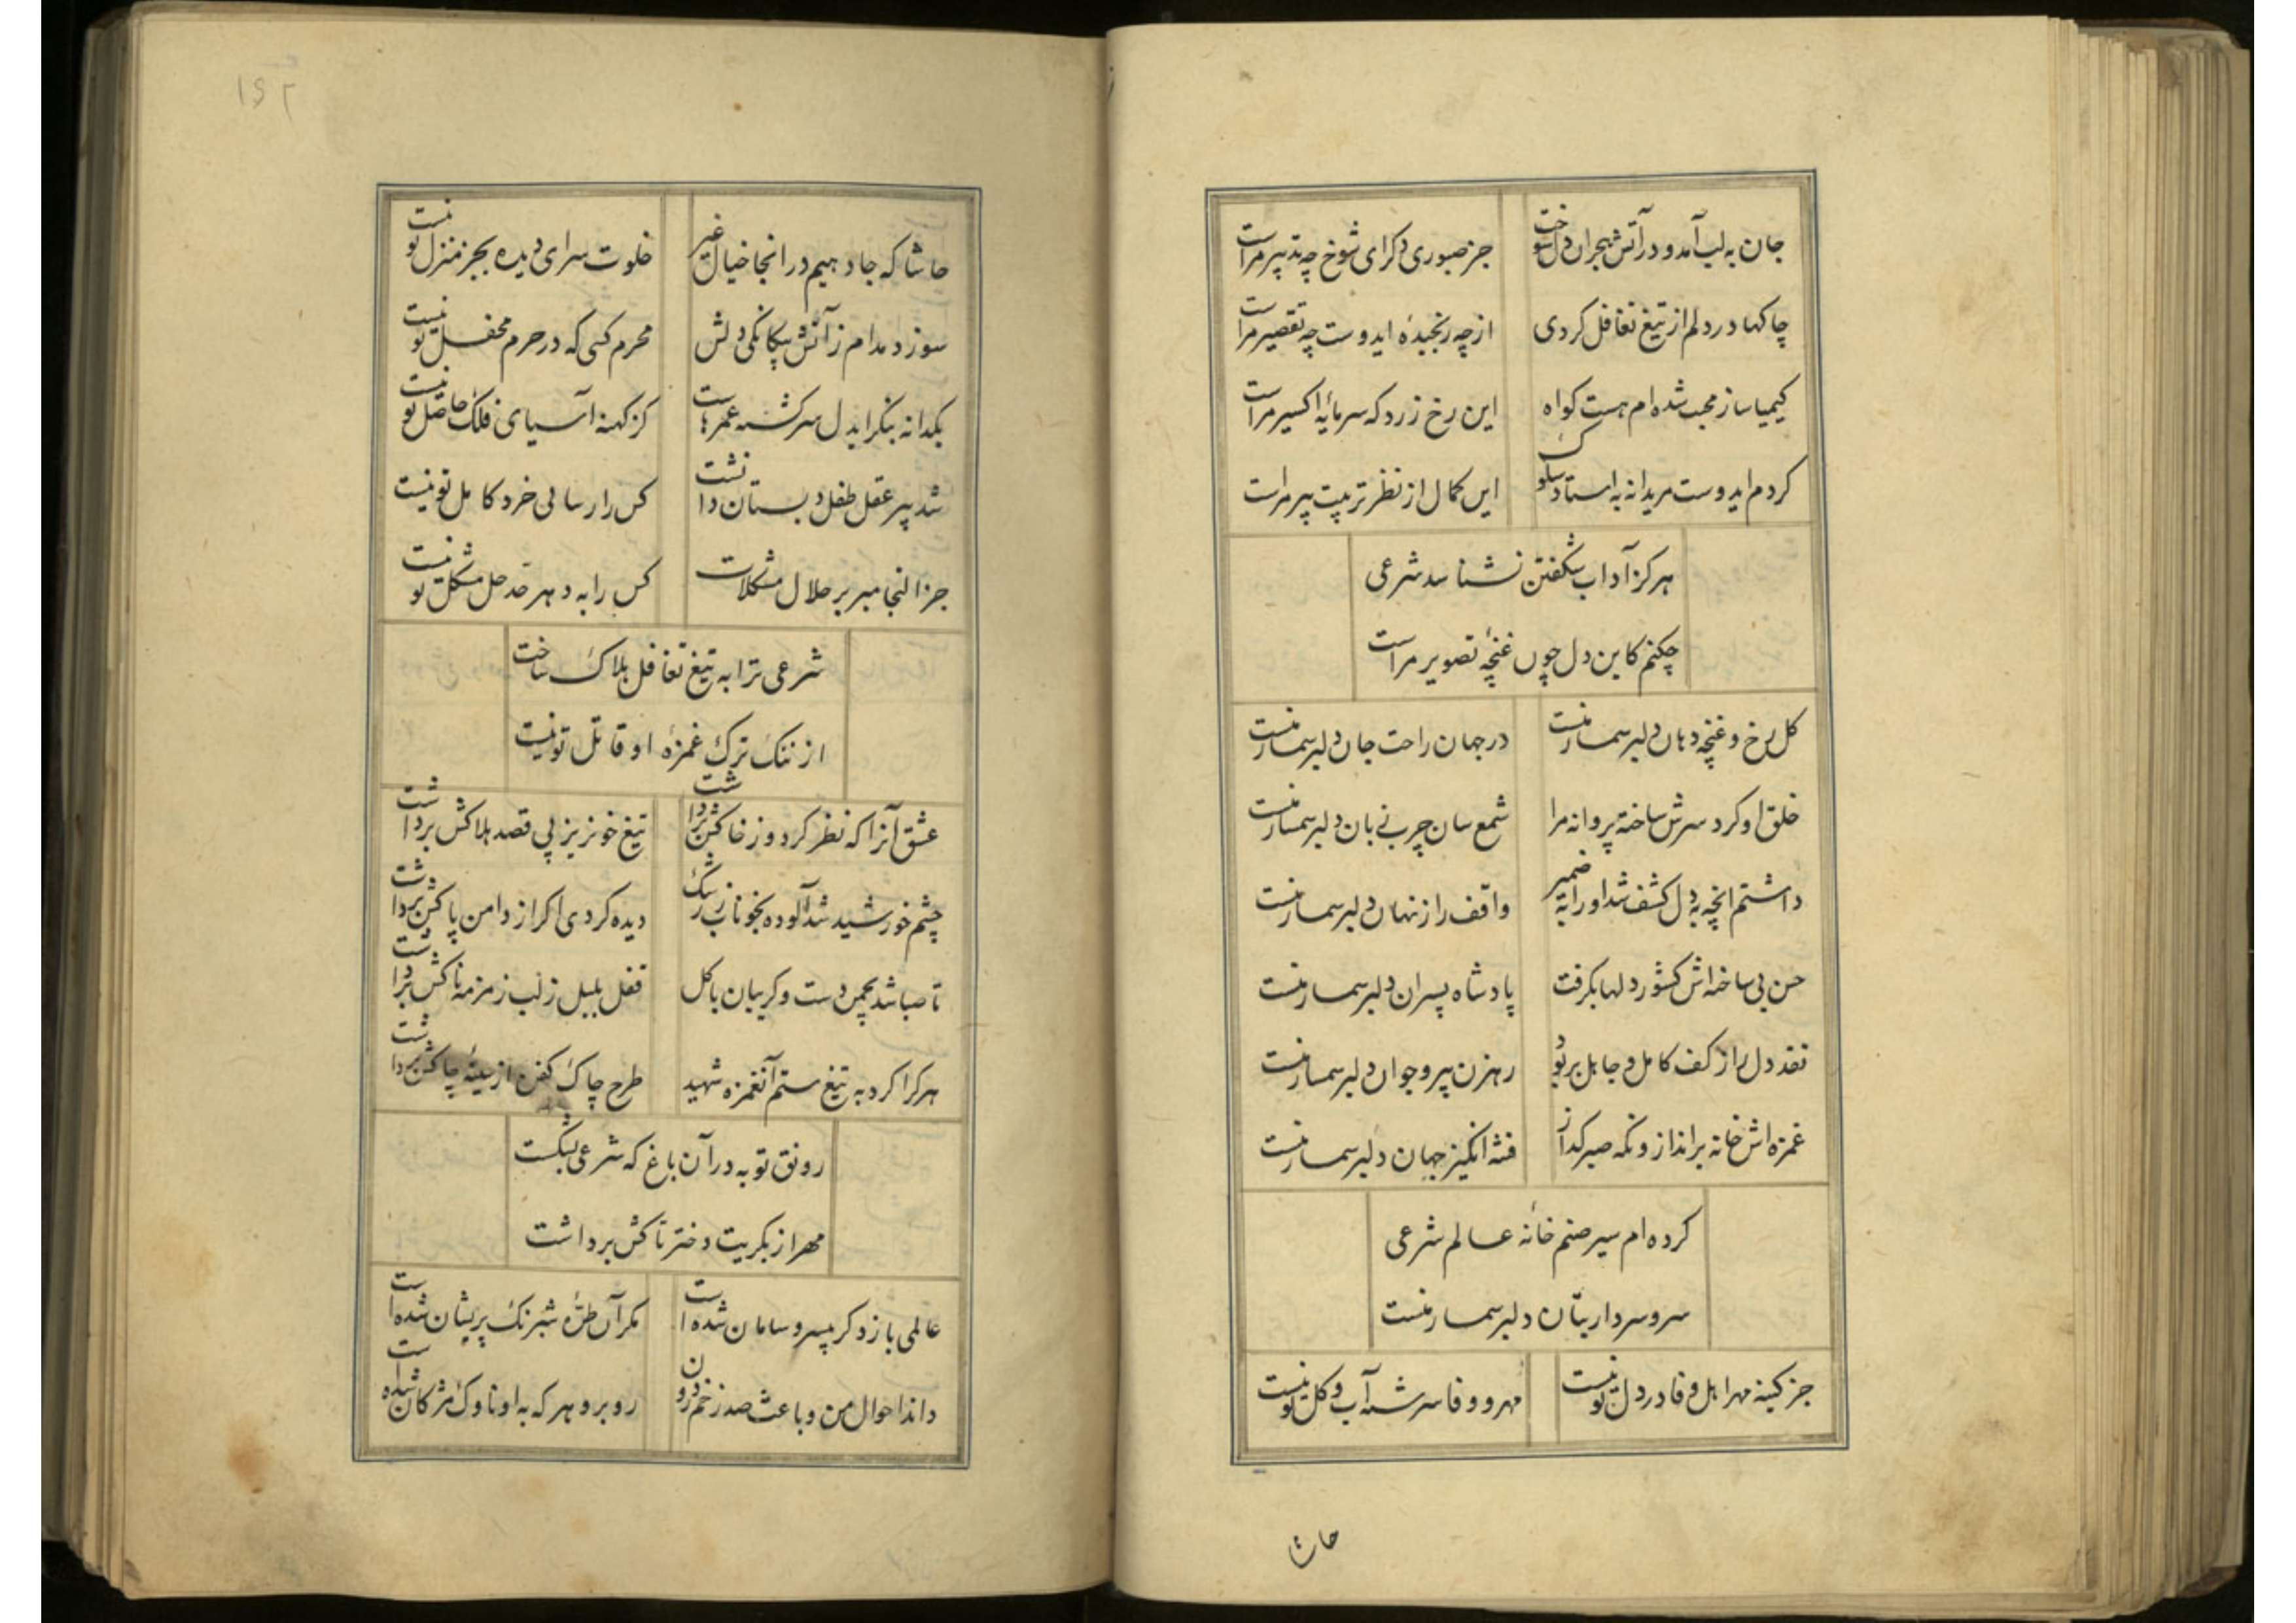 جان به لب آمد و در آتش هجران دل سوخت جز صبوری دکر ای شوخ چه تدبیر مراست
چاکها در دلم از تیغ تغافل کردی از چه رنجیدهٔ ایدوست چه تقصیر مراست
کیمیا ساز محبت شده ام هست کواه این رخ زرد که سرمایهٔ اکسیر مراست
کردم ایدوست مریدانه به استاد سلوک این کمال از نظر تربیت پیر مراست
هرکز آداب شکفتن نشناسد شرعی
چکنم کاین دل چون غنچهٔ تصویر مراست
کل رخ و غنچه دهان دلبر سمسار منست در جهان راحت جان دلبر سمسار منست
خلق او کرد سرش ساخته پروانه مرا شمع سان چرب زبان دلبر سمسار منست
داشتم انچه به دل کشف شد او را به ضمیر واقف راز نهان دلبر سمسار منست
حسن بی ساخته اش کشور دلها بکرفت پادشاه پسران دلبر سمسار منست
نقد دل را ز کف کامل و جاهل بربود رهزن پیر و جوان دلبر سمسار منست
غمزه اش خانه برانداز و نکه صبر کداز فتنه انکیز جهان دلبر سمسار منست
کرده ام سیر صنم خانهٔ عالم شرعی
سرو سردار بتان دلبر سمسار منست
جز کینه مهر اهل وفا در دل تو نیست مهر و وفا سرشتهٔ آب و کل تو نیست
حاشا
۱۶۲
حاشا که جا دهیم در انجا خیال غیر خلوت سرای دیده بجز منزل تو نیست
سوزد مدام ز آتش بیکانکی دلش محرم کسی که در حرم محفل تو نیست
یکدانه بنکر ایدل سرکشته عمرهاست کز کهنه آسیای فلک حاصل تو نیست
شد پیر عقل طفل دبستان دانشت کس را رسائی خرد کامل تو نیست
جز التجا مبر بر حلال مشکلات کس را به دهر حد حل مشکل تو نیست
شرعی ترا به تیغ تغافل هلاک ساخت
از ننک ترک غمزهٔ او قاتل تو نیست
عشق آنرا که نظر کرد و ز خاکش برداشت تیغ خونریز پی قصد هلاکش برداشت
چشم خورشید شد آلوده بخوناب ز رشک دیده کردی اکر از دامن پاکش برداشت
تا صبا شد بچمن دست و کریبان با کل قفل بلبل ز لب زمزمه ناکش برداشت
هرکرا کرد به تیغ ستم آنغمزه شهید طرح چاک کفن از سینهٔ چاکش برداشت
رونق توبه در آن باغ که شرعی بشکست
مهر از بکریت دختر تاکش برداشت
عالمی باز دکر بیسر و سامان شده است مکر آن طرهٔ شبرنک پریشان شده است
داند احوال من و باعث صد زخم درون روبرو هر که به او ناوک مژکان شده است